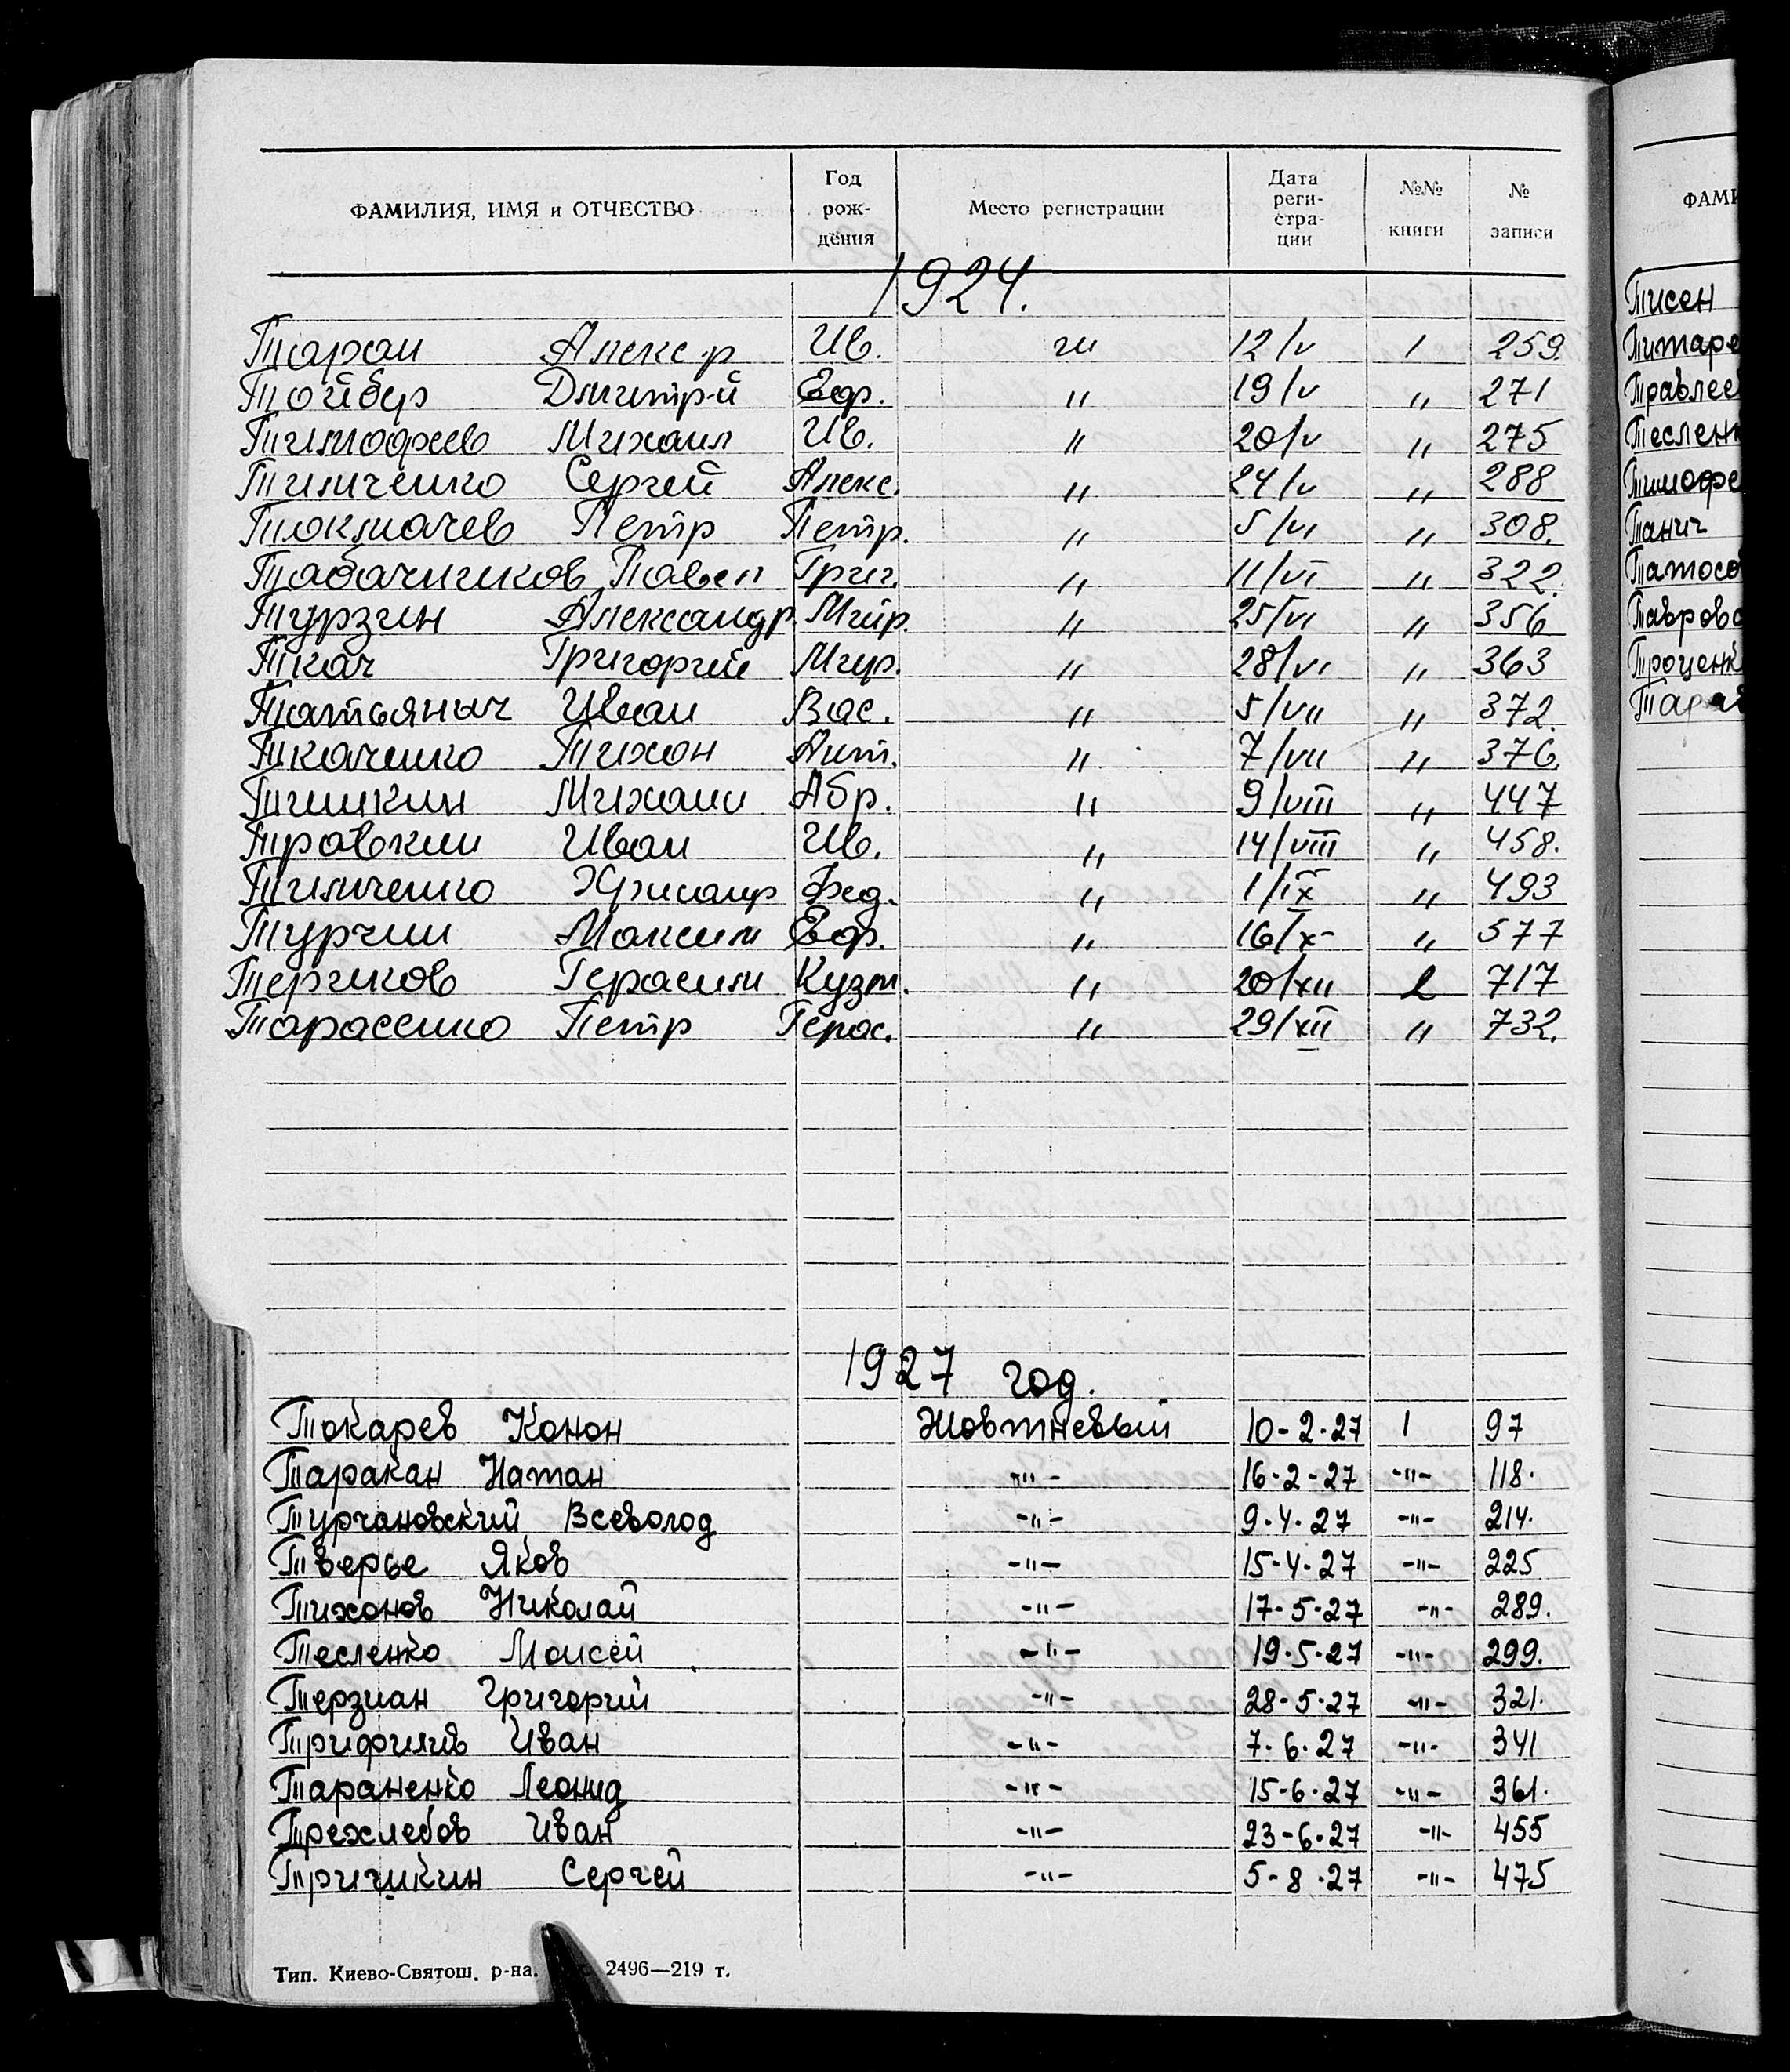 ФАМИЛИЯ, ИМЯ и ОТЧЕСТВО Год рож-дения Место регистрации Дата реги-стра-ции №№ книги № записи
1924.
Таран Алекс-р Ив. 12/V 1 259.
Тойбер Дмитр-й Еф. " 19/V " 271
Тимофеев Михаил Ив. " 20/V " 275
Тимченко Сергей Алекс. " 24/V " 288
Токмачев Петр Петр. " 5/VI " 308.
Табачников Павел Григ. " 11/VI " 322.
Турзин Александр. " 25/VI " 356
Ткач Григорий " 28/VI " 363
Татьянич Иван Вас. " 5/VII " 372.
Ткаченко Тихон Ант. " 7/VII " 376.
Тишкин Михаил Абр. " 9/VIII " 447
Травкин Иван Ив. " 14/VIII " 458.
Тимченко Фед. " 1/IX " 493
Турчин Максим Еф. " 16/X- " 577
Терчков Герасим Кузм. " 20/XII 2 717
Тарасенко Петр Герас. " 29/XII " 732.
1927 год.
Токарев Конон Жовтневый 10-2-27 1 97
Таракан Натан -"- 16-2-27 -"- 118.
Турчановский Всеволод -"- 9-4-27 -"- 214.
Тверье Яков -"- 15-4-27 -"- 225
Тихонов Николай -"- 17-5-27 -"- 289.
Тесленко Моисей -"- 19-5-27 -"- 299.
Терзиан Григорий -"- 28-5-27 -"- 321.
Трифилов Иван -"- 7-6-27 -"- 341
Тараненко Леонид -"- 15-6-27 -"- 361.
Трехлебов Иван -"- 23-6-27 -"- 455
Тричикин Сергей -"- 5-8-27 -"- 475
Тип. Киево-Святош. р-на. 2496—219 т.
ФАМИ
Тисен
Титаре
Травлее
Тесленк
Тимофе
Танич
Татосо
Таврово
Проценк